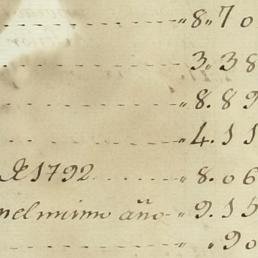 8.70
3.38
8.89
4.11
1792 8.06
nel mismo año 9.15
.90